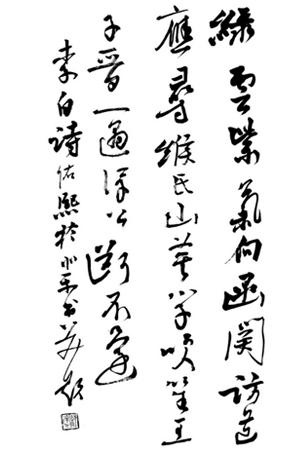 綠雲紫氣向函關訪道
應尋緱氏山莫學吹笙王
子晉一遇浮丘斷不還
李白詩佑熙於北京書